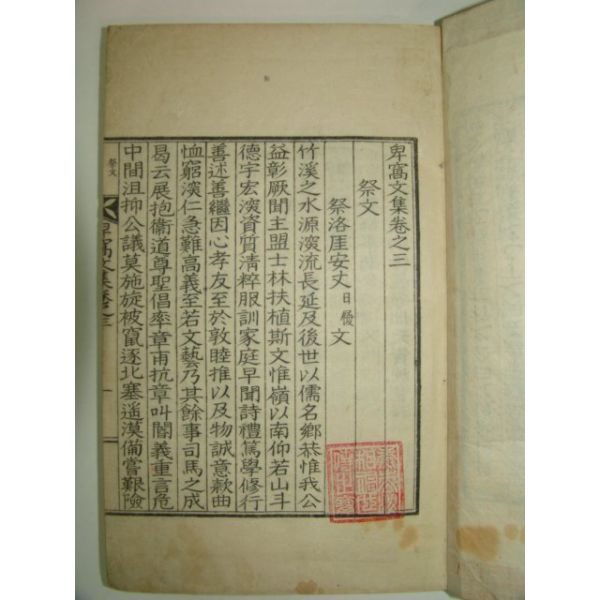 卑窩文集卷之三
祭文
祭洛厓安丈日履文
竹溪之水源深流長延及後世以儒名鄕恭惟我公
益彰厥聞主盟士林扶植斯文惟嶺以南仰若山斗
德宇宏深資質淸粹服訓家庭早聞詩禮篤學修行
善述善繼因心孝友至於敦睦推以及物誠意款曲
恤窮深仁急難高義至若文藝乃其餘事司馬之成
曷云展抱衛道尊聖倡率章甫抗章叫閽義重言危
中間沮抑公議莫施旋被竄逐北塞遥漠備嘗艱險
祭文
卑窩文集卷之三
一